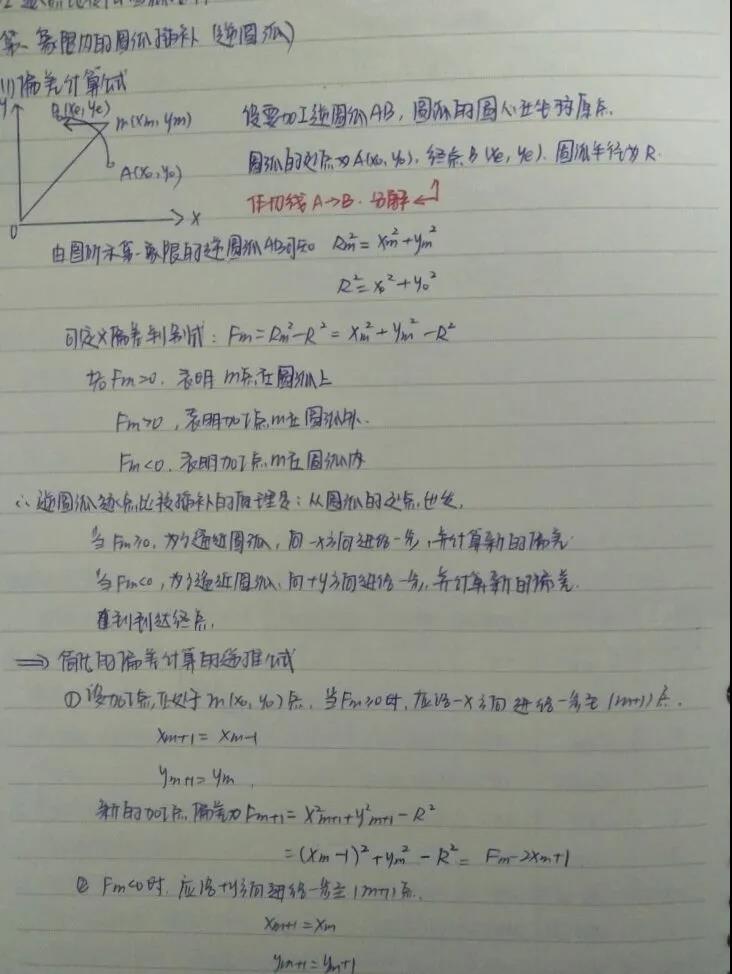 第一象限内的圆弧插补（逆圆弧）
(1)偏差计算公式
y
B(xe, ye)
m(xm, ym)
A(x0, y0)
0
x
设要加工逆圆弧AB，圆弧的圆心在坐标原点.
圆弧的起点为A(x0, y0)，终点B(xe, ye). 圆弧半径为R.
作切线A→B. 分解
由图所示第一象限的逆圆弧AB可知 Rm²=xm²+ym²
R²=x0²+y0²
可定义偏差判别式：Fm=Rm²-R²=xm²+ym²-R²
若Fm=0. 表明m点在圆弧上
Fm>0，表明加工点m在圆弧外.
Fm<0. 表明加工点m在圆弧内
∴逆圆弧逐点比较插补的原理是：从圆弧的起点出发，
当Fm≥0，为了逼近圆弧，向-x方向进给一步，并计算新的偏差
当Fm<0，为了逼近圆弧，向+y方向进给一步，并计算新的偏差.
直到到达终点.
⇒ 简化的偏差计算的递推公式
①设加工点正处于m(x0, y0)点，当Fm≥0时，应沿-x方向进给一步至(m+1)点.
xm+1=xm-1
ym+1=ym
新的加工点偏差为Fm+1=x²m+1+y²m+1-R²
=(xm-1)²+ym²-R²=Fm-2xm+1
②Fm<0时，应沿+y方向进给一步至(m+1)点.
xm+1=xm
ym+1=ym+1